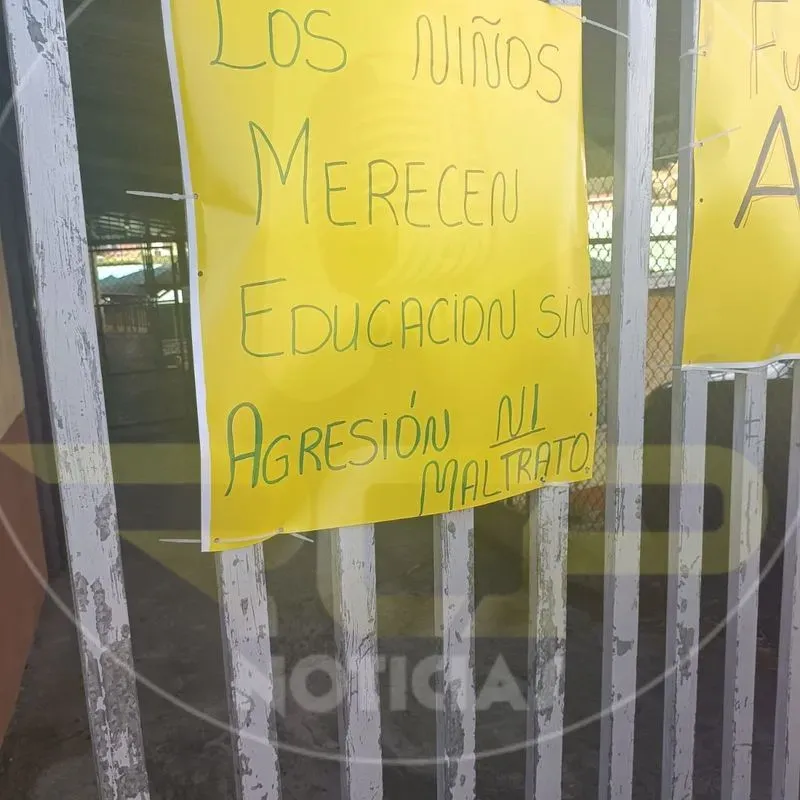 Los NIÑOS
MERECEN
EDUCACION SIN
AGRESIÓN NI
MALTRATO.
FU
A
NOTICIAS